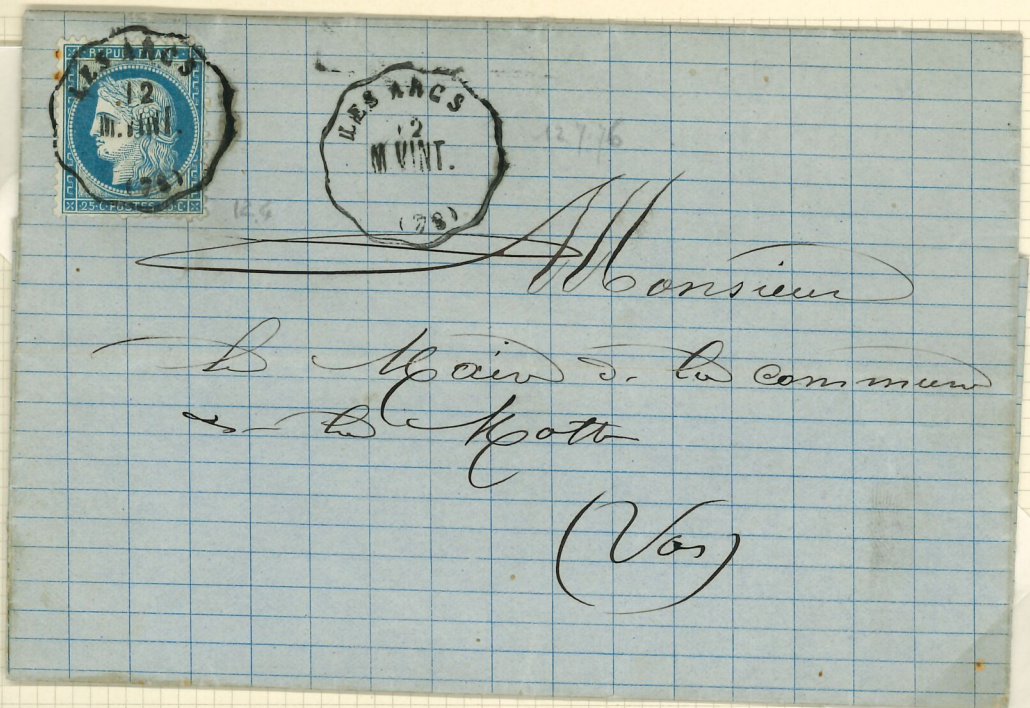 REPUB FRANC
LES ARCS
12
M.VINT.
(78)
25·C·POSTES
LES ARCS
12
M VINT.
(78)
12 7 76
Monsieur
le Maire de la commune
de la Motte
(Var)